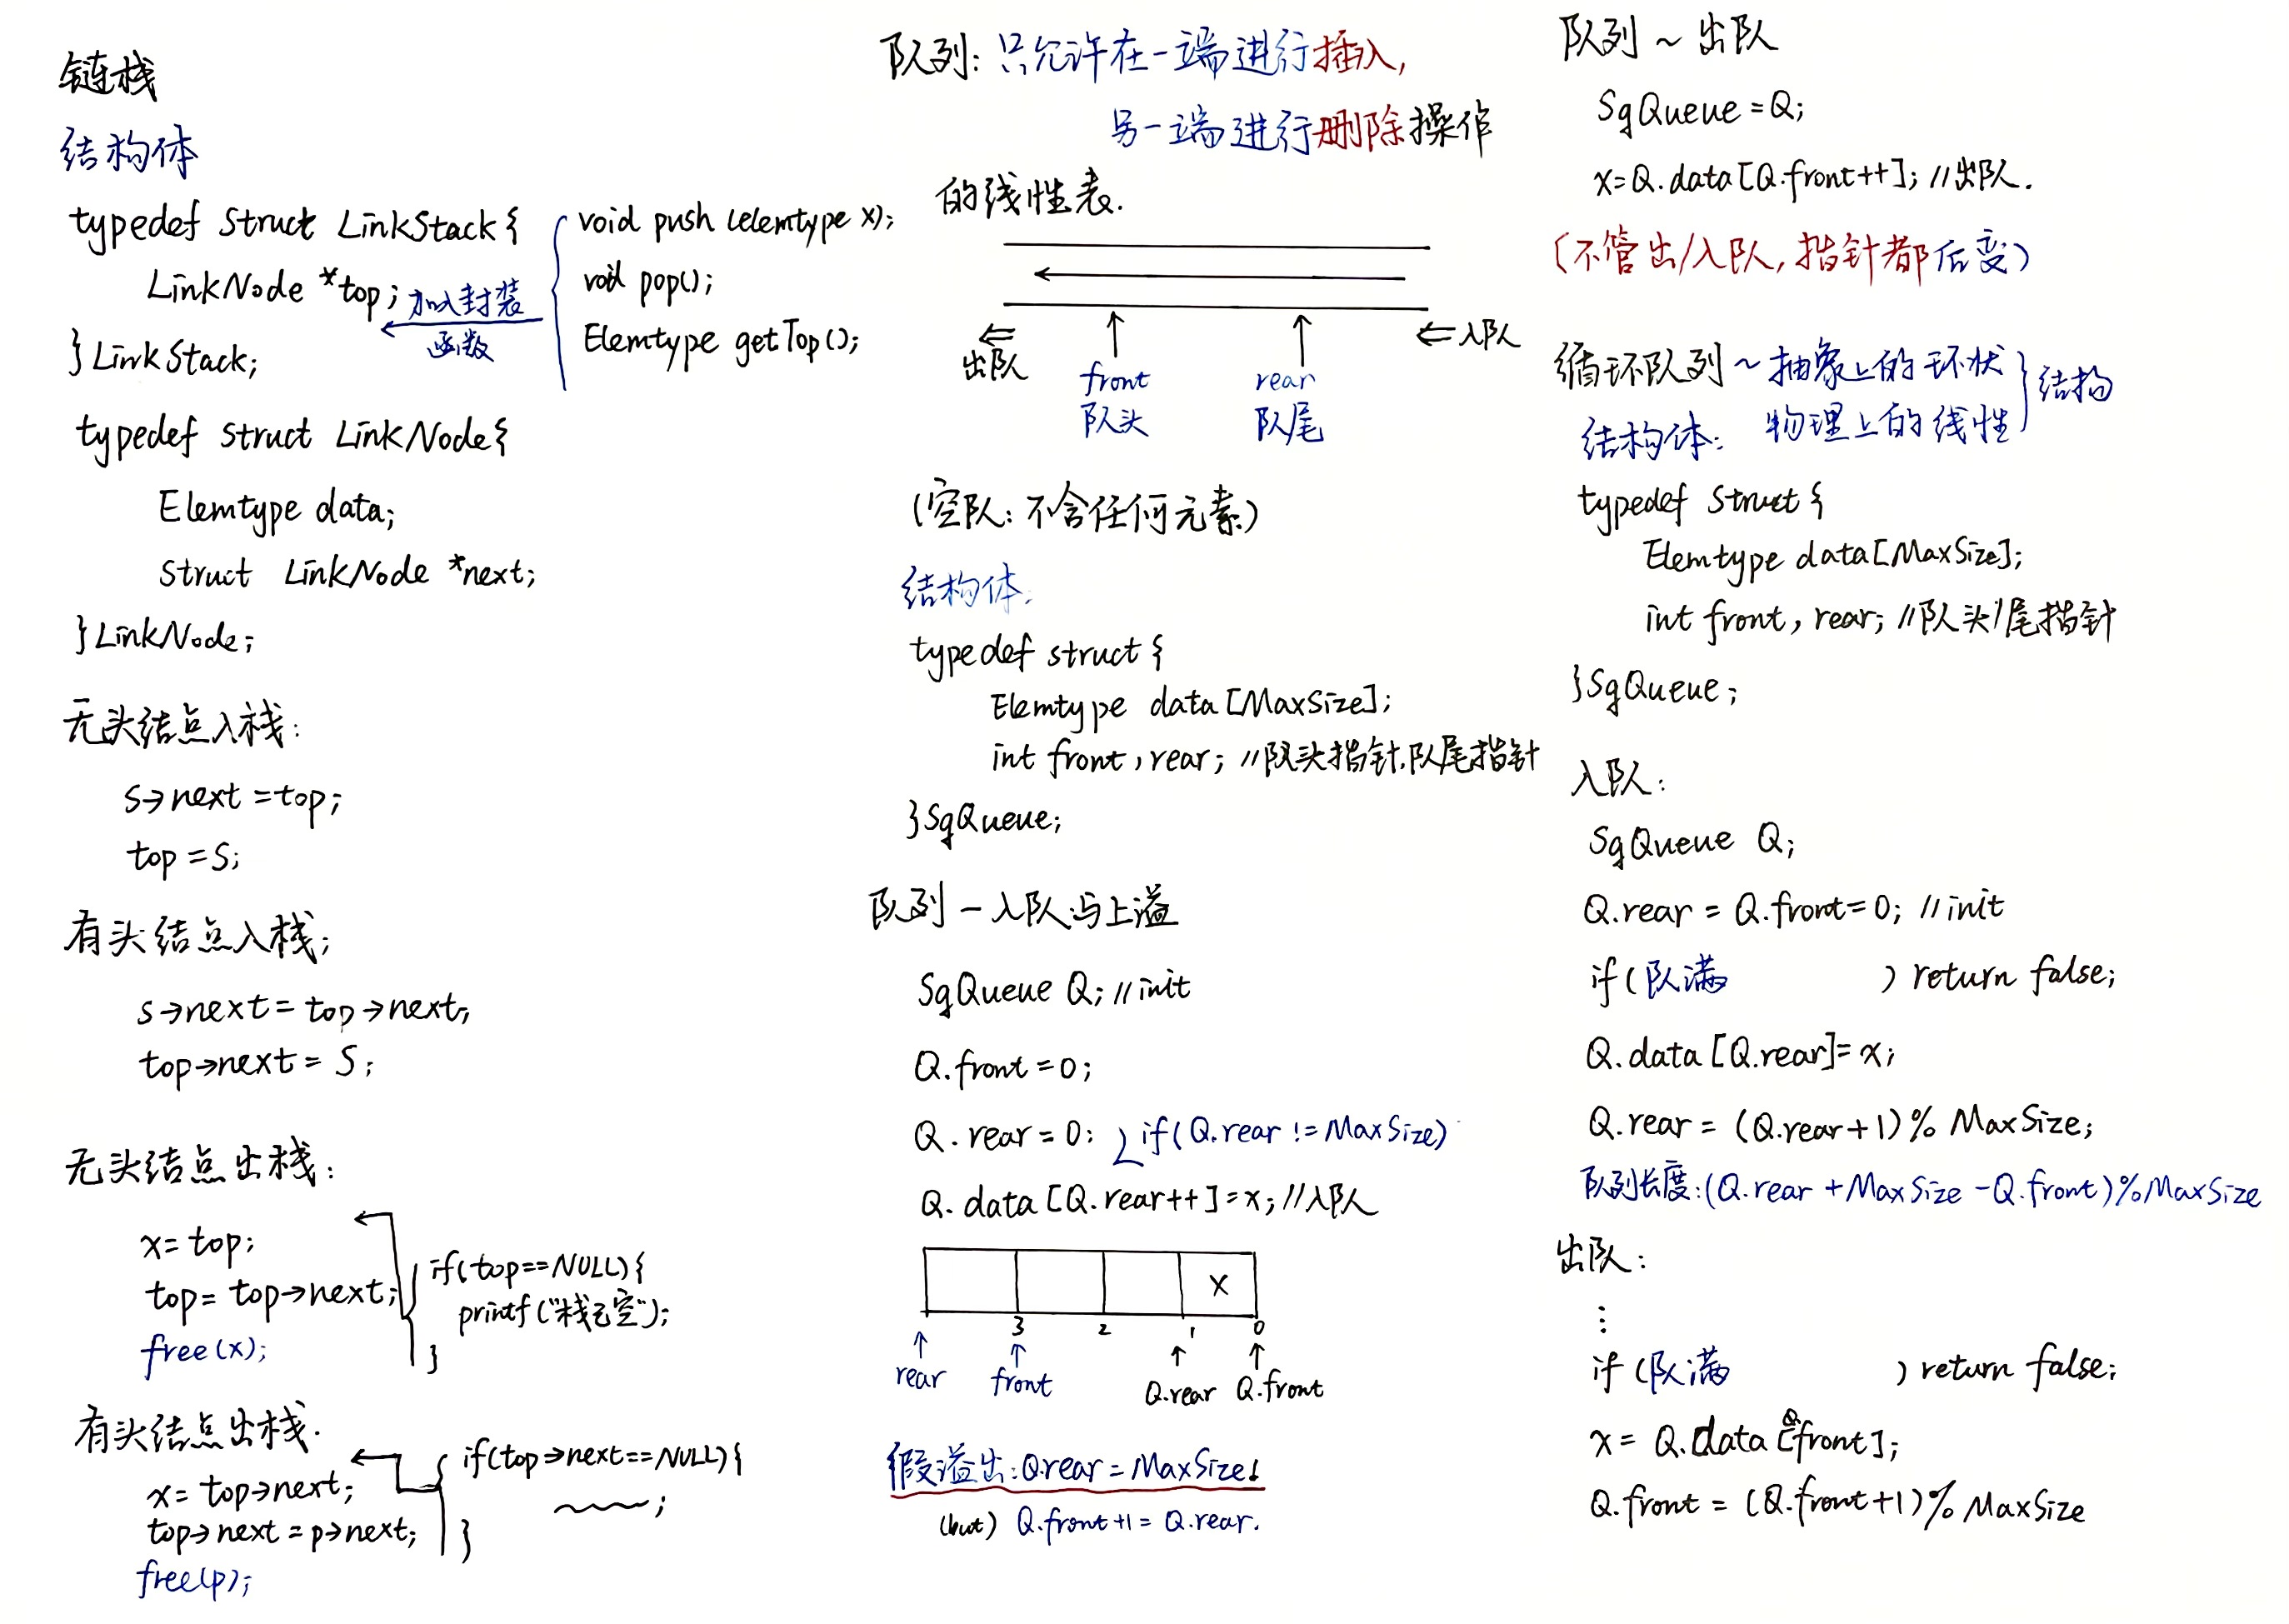 链栈
结构体
typedef struct LinkStack{
LinkNode *top;
}LinkStack;
加入封装
函数
void push (elemtype x);
void pop();
Elemtype getTop();
typedef struct LinkNode{
Elemtype data;
struct LinkNode *next;
}LinkNode;
无头结点入栈:
s→next=top;
top=S;
有头结点入栈;
s→next=top→next;
top→next=S;
无头结点出栈:
x=top;
top=top→next;
free(x);
if(top==NULL){
printf("栈已空");
}
有头结点出栈.
x=top→next;
top→next=p→next;
free(p);
if(top→next==NULL){
~~~;
}
队列:只允许在一端进行插入,
另一端进行删除操作
的线性表.
出队
入队
front
队头
rear
队尾
(空队:不含任何元素)
结构体:
typedef struct{
Elemtype data[MaxSize];
int front,rear; //队头指针,队尾指针
}SqQueue;
队列-入队与上溢
SqQueue Q; //init
Q.front=0;
Q.rear=0; if(Q.rear!=MaxSize)
Q.data[Q.rear++]=x; //入队
x
3 2 1 0
rear front Q.rear Q.front
假溢出:Q.rear=MaxSize!
(but) Q.front+1=Q.rear.
队列~出队
SqQueue=Q;
x=Q.data[Q.front++]; //出队.
(不管出/入队,指针都后变)
循环队列~抽象上的环状
物理上的线性
结构
结构体:
typedef struct{
Elemtype data[MaxSize];
int front, rear; //队头/尾指针
}SqQueue;
入队:
SqQueue Q;
Q.rear=Q.front=0; //init
if(队满 ) return false;
Q.data[Q.rear]=x;
Q.rear=(Q.rear+1)%MaxSize;
队列长度:(Q.rear+MaxSize-Q.front)%MaxSize
出队:
⋮
if(队满 ) return false;
x=Q.data[Q.front];
Q.front=(Q.front+1)%MaxSize